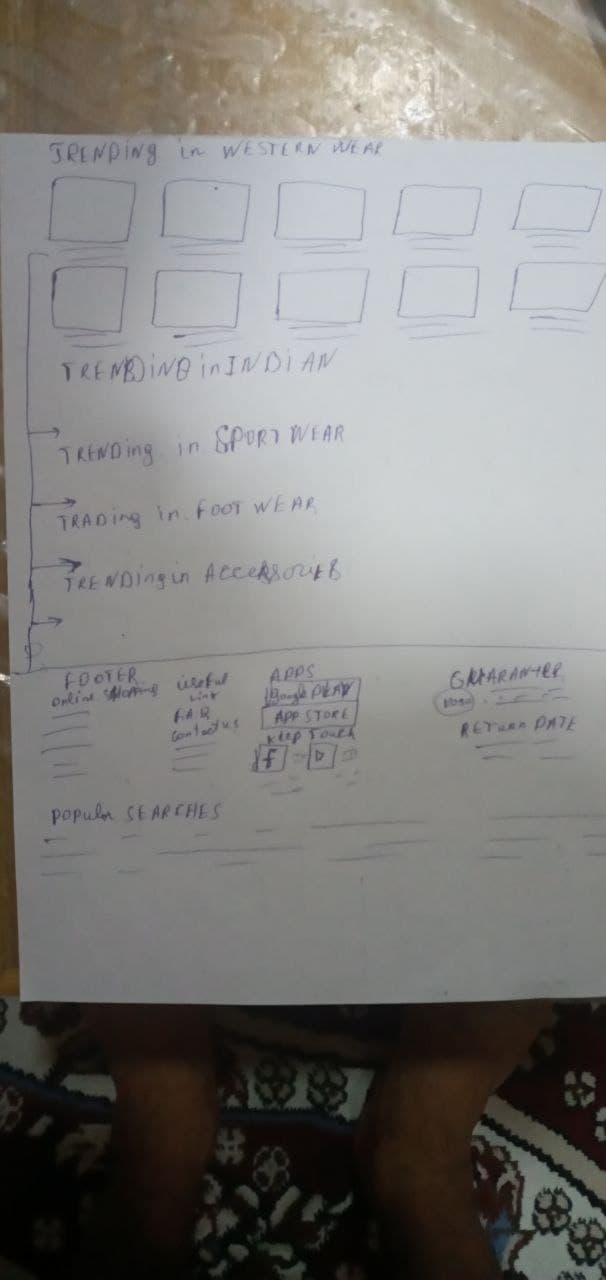 TRENDING in WESTERN WEAR
TRENDING in INDIAN
TRENDING in SPORT WEAR
TRADING in FOOT WEAR
TRENDING in ACCESSORIES
FOOTER
online shopping
useful
Link
F.A.Q
contact us
APPS
Google PLAY
APP STORE
KEEP TOUCH
f
GUARANTEE
RETURN DATE
Popular SEARCHES